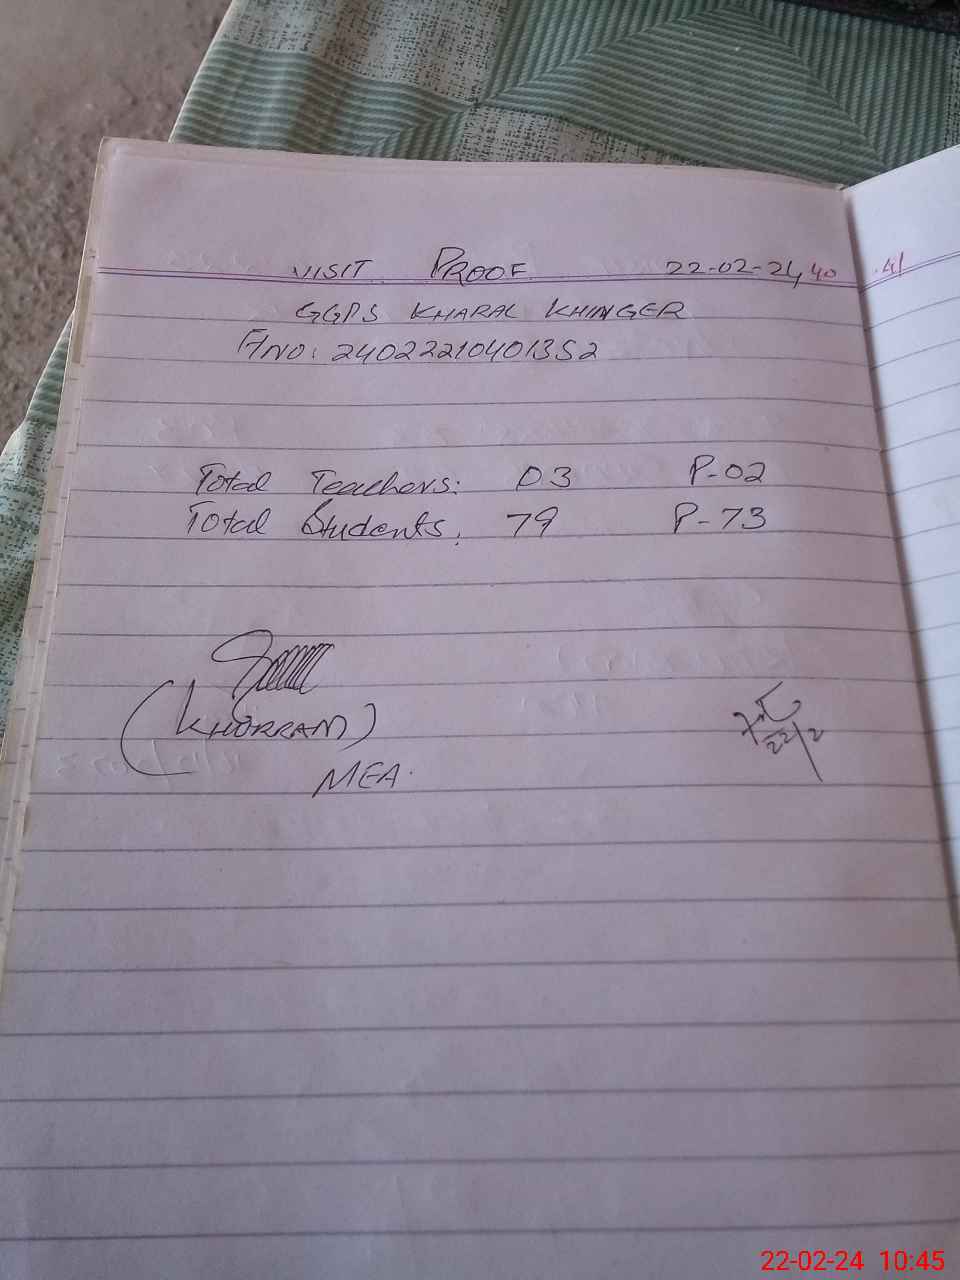 VISIT PROOF 22-02-24 40 41
GGPS KHARAL KHINGER
ANO: 24022210401352
Total Teachers: 03 P-02
Total Students: 79 P-73
(KHORRAM)
MEA.
22/2
22-02-24 10:45